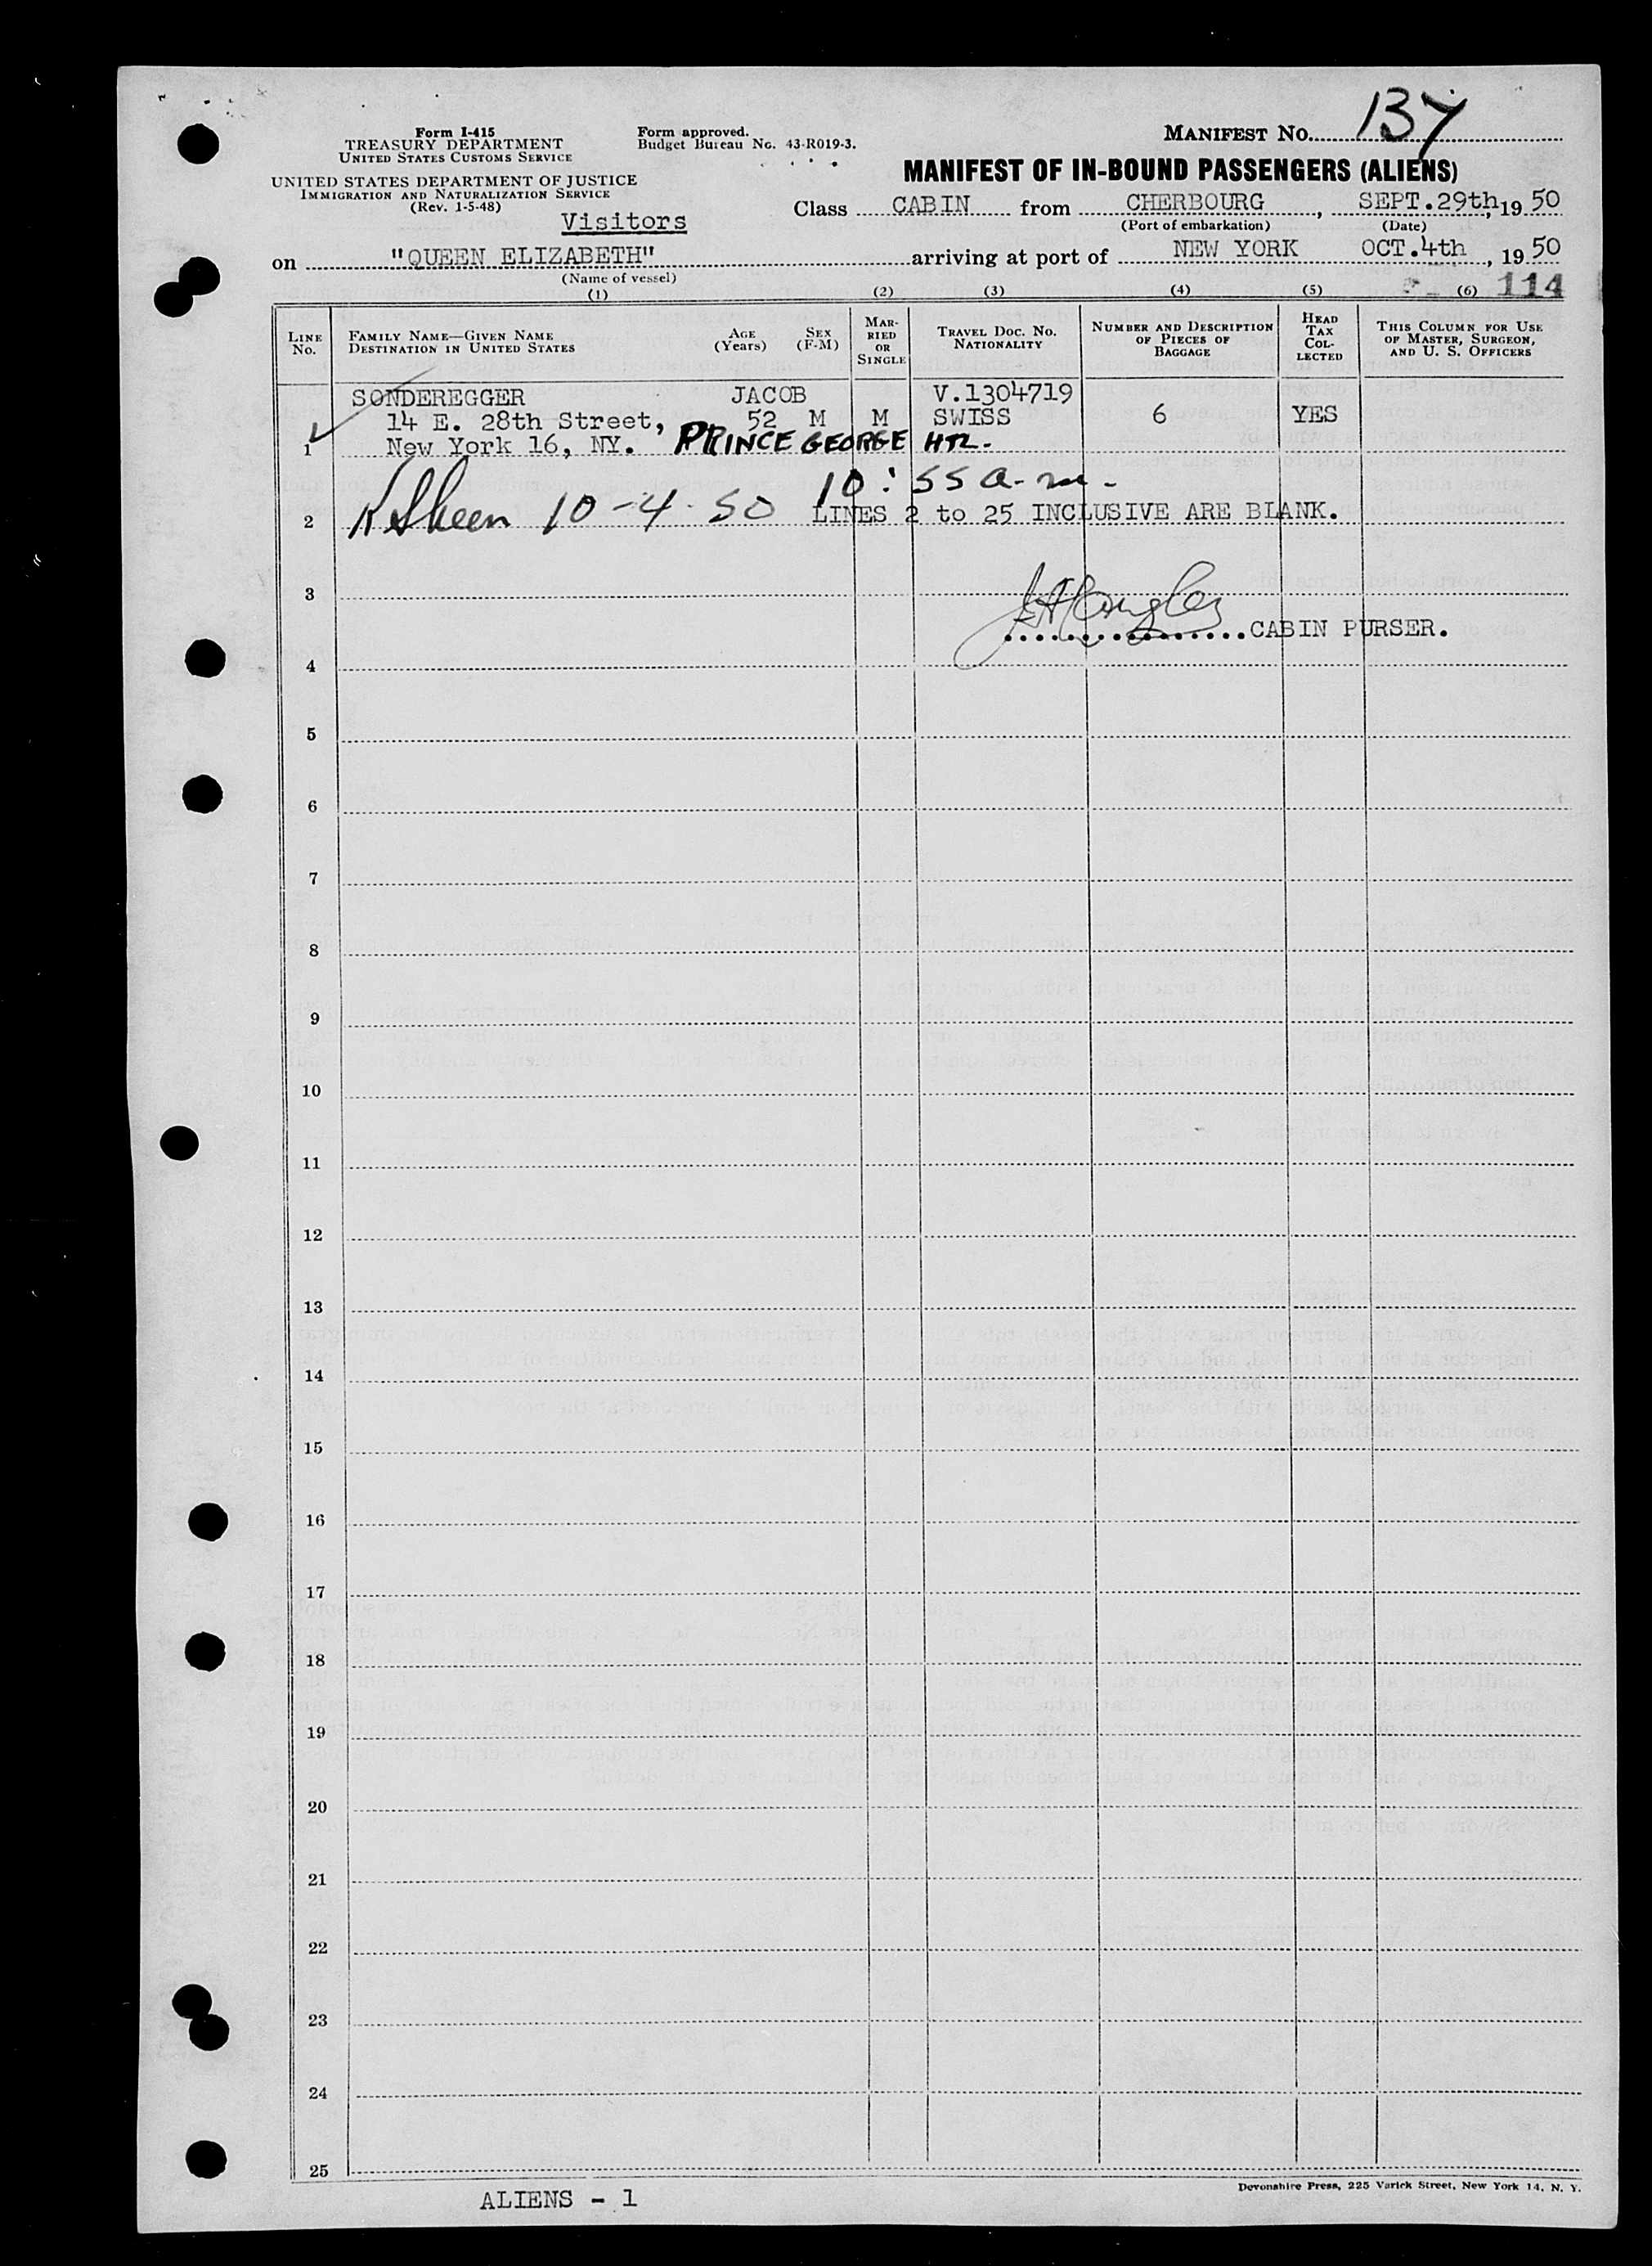 MANIFEST NO. 137
Form I-415
TREASURY DEPARTMENT
UNITED STATES CUSTOMS SERVICE
Form approved.
Budget Bureau No. 43-R019-3.
UNITED STATES DEPARTMENT OF JUSTICE
IMMIGRATION AND NATURALIZATION SERVICE
(Rev. 1-5-48)
MANIFEST OF IN-BOUND PASSENGERS (ALIENS)
Visitors
Class CABIN from CHERBOURG, SEPT.29th, 19 50
(Port of embarkation) (Date)
on "QUEEN ELIZABETH" arriving at port of NEW YORK OCT.4th, 19 50
(Name of vessel)
114
(1) (2) (3) (4) (5) (6)
LINE No. FAMILY NAME—GIVEN NAME DESTINATION IN UNITED STATES AGE (Years) SEX (F-M) MARRIED OR SINGLE TRAVEL DOC. NO. NATIONALITY NUMBER AND DESCRIPTION OF PIECES OF BAGGAGE HEAD TAX COLLECTED THIS COLUMN FOR USE OF MASTER, SURGEON, AND U. S. OFFICERS
SONDEREGGER JACOB V.1304719
14 E. 28th Street, 52 M M SWISS 6 YES
1 New York 16, NY. PRINCE GEORGE HTL.
10:55 a.m.
2 10-4-50 LINES 2 to 25 INCLUSIVE ARE BLANK.
3
CABIN PURSER.
4
5
6
7
8
9
10
11
12
13
14
15
16
17
18
19
20
21
22
23
24
25
Devonshire Press, 225 Varick Street, New York 14, N. Y.
ALIENS - 1